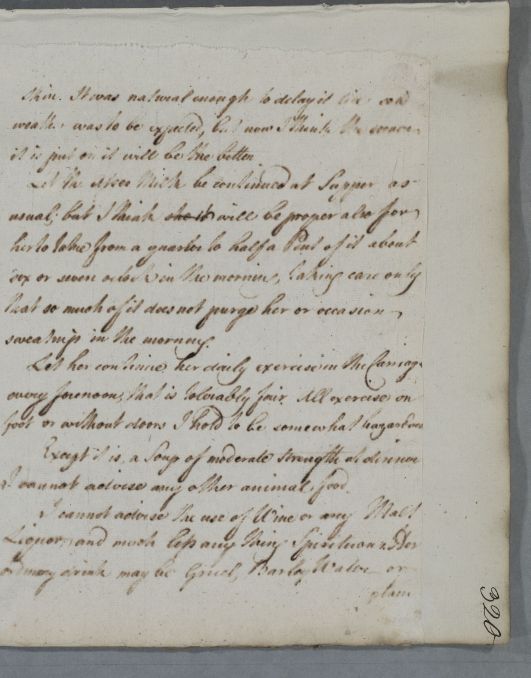 skin. It was natural enough to delay it till cold
weather was to be expected, but now I think the sooner
it is put on it will be the better.
Let the Asses Milk be continued at Supper as
usual; but I think she it will be proper also for
her to take from a quarter to half a Pint of it about
six or seven o'clock in the morning, taking care only
that so much of it does not purge her or occasion
sweatings in the morning
Let her continue her daily exercise in the Carriage
every forenoon, that is tolerably fair. All exercise on
foot or without doors I hold to be somewhat hazardous
Except it is a Soup of moderate strength at dinner
I cannot advise any other animal food.
I cannot advise the use of Wine or any Malt
Liquor, and much less any thing Spirituous. Her
ordinary drink may be Gruel, Barley Water or
plain
320